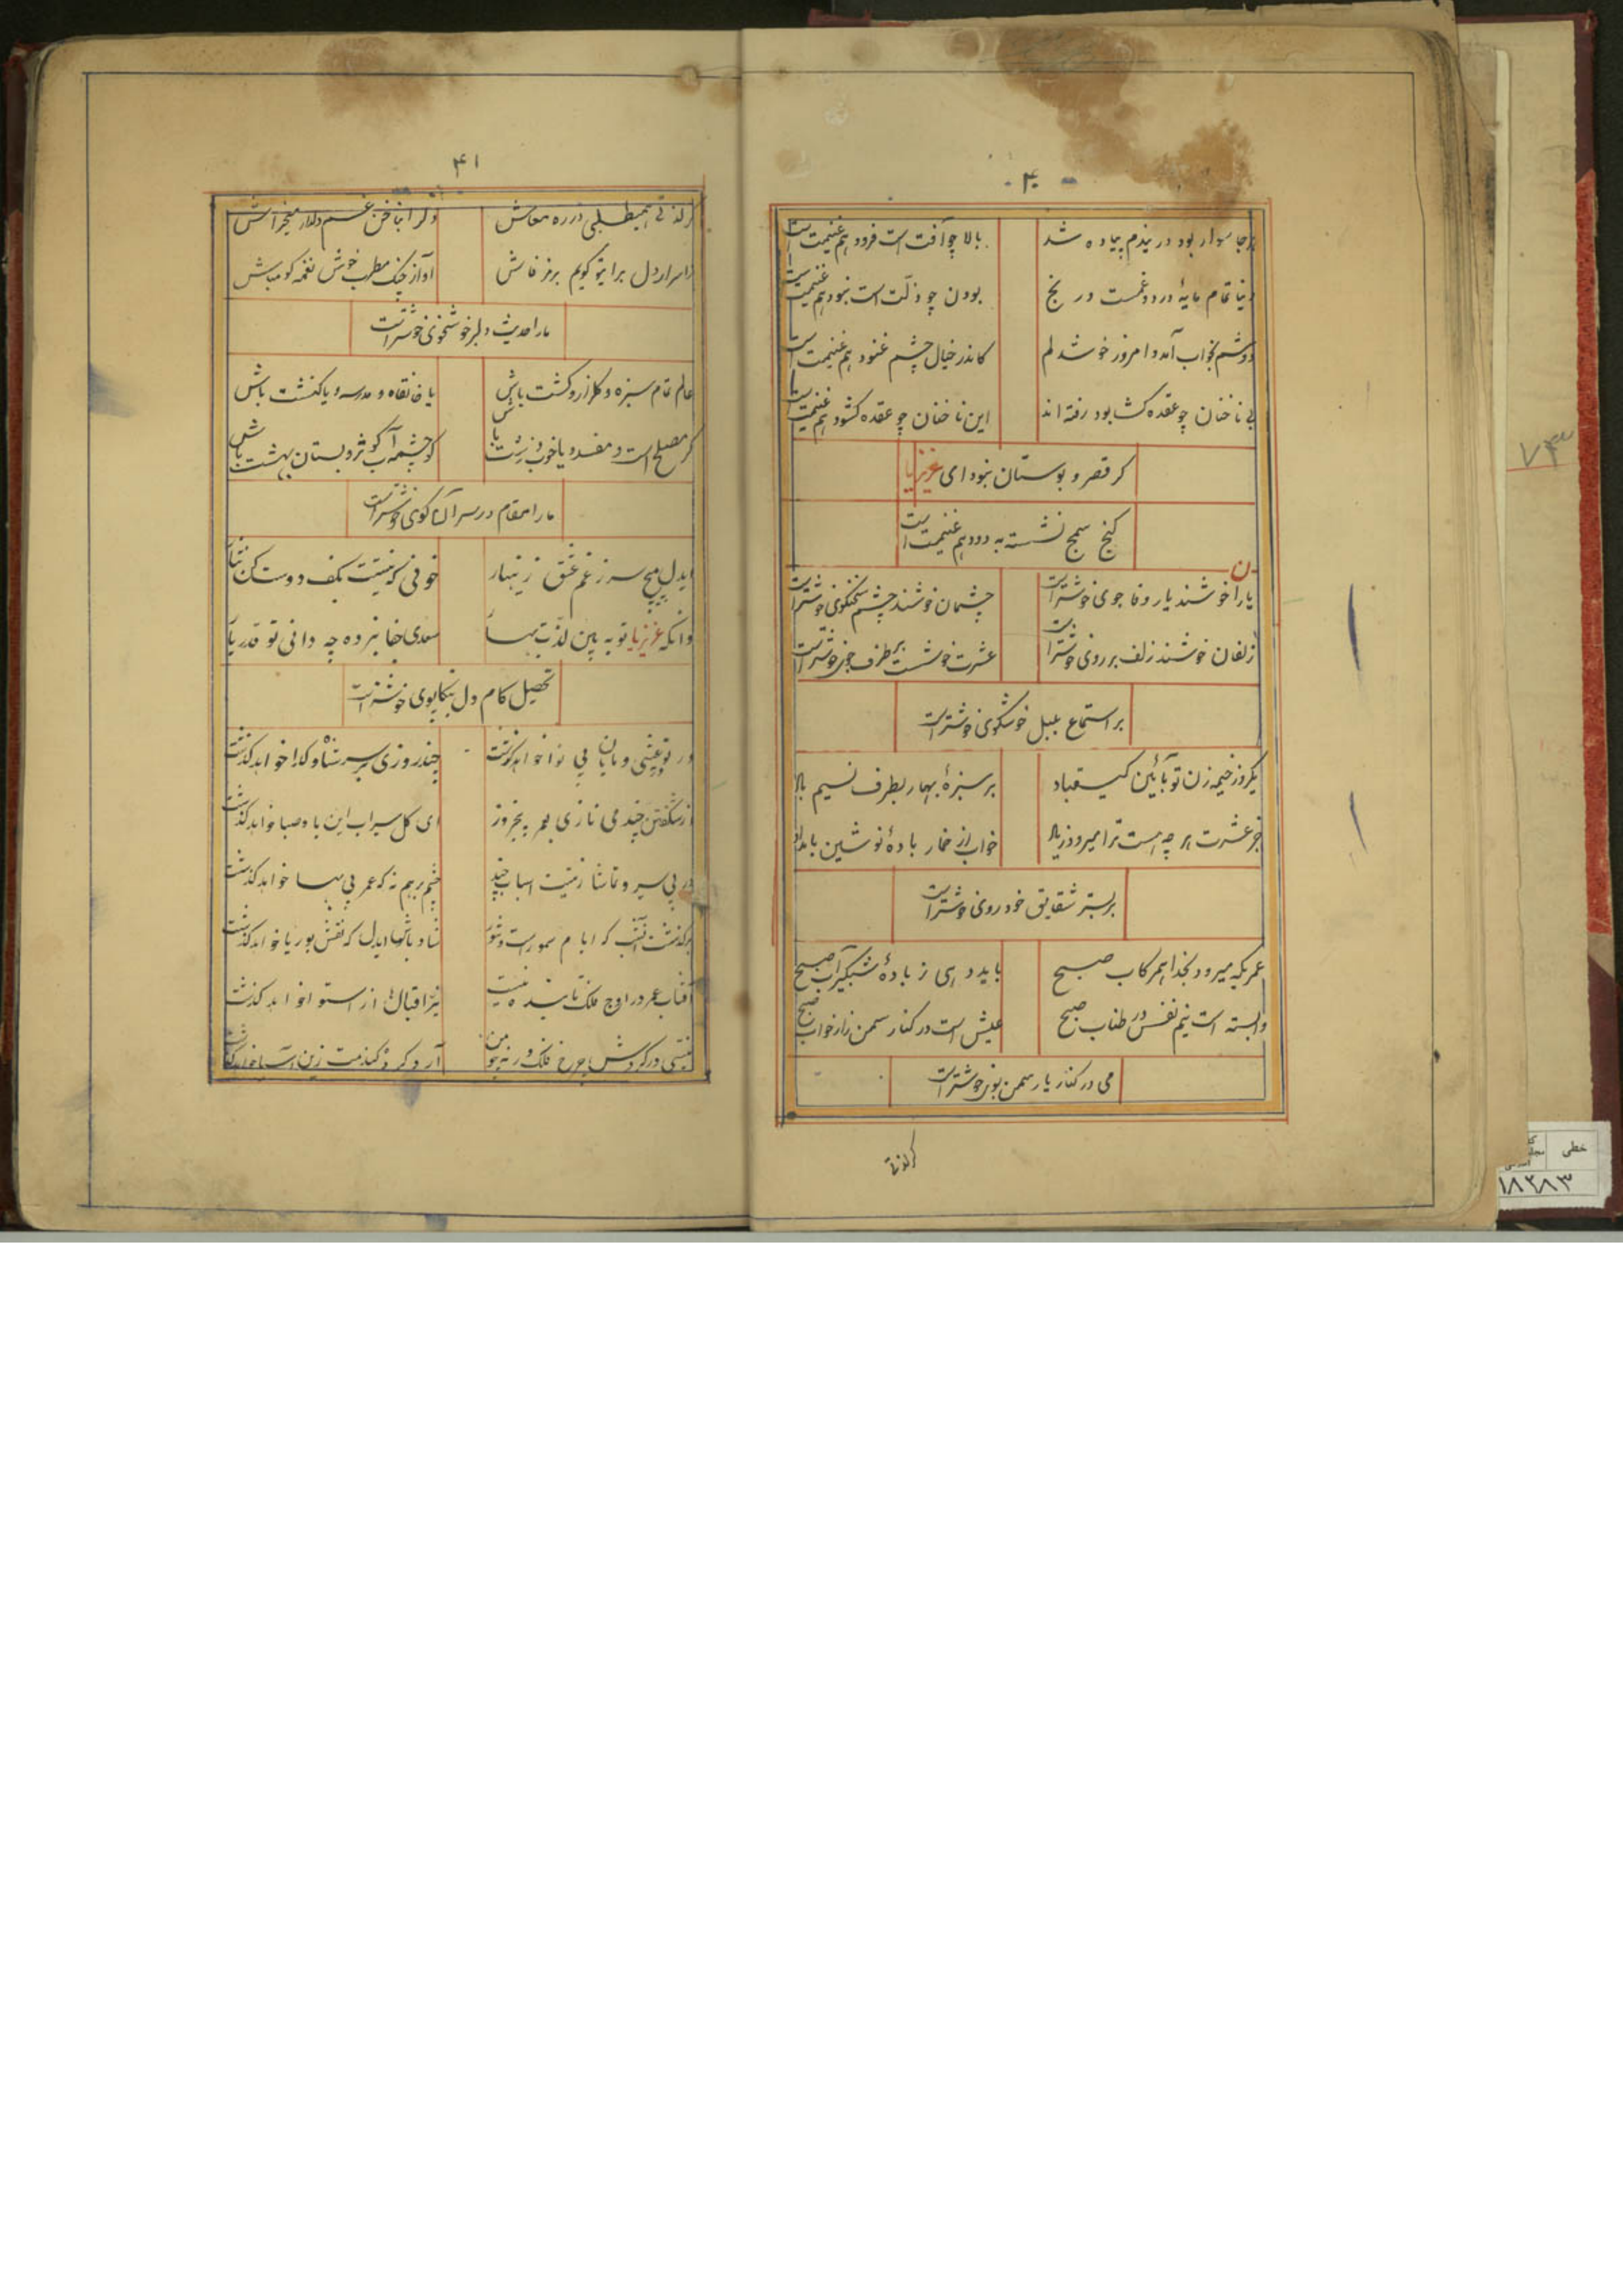 ۴۰
هرجا سوار بود در یندم پیاده شد بالا چو آفت است فرود هم غنیمت است
دنیا تمام مایهٔ درد و غمست در نج بودن چو ذلت است نبود هم غنیمت است
دوشم بخواب آمد و امروز خوشدلم کاندر خیال چشم غنود هم غنیمت است
بی ناخنان چو عقده گشا بود رفته اند این ناخنان چو عقده گشود هم غنیمت است
گر قصر و بوستان نبود ای عزیزیا
کنج سمج نشسته به دود هم غنیمت است
یارا خوشند یار وفا جوی خوشتر است چشمان خوشند چشم سخنگوی خوشتر است
زلفان خوشند زلف بر روی خوشتر است عشرت خوشست بر طرف جوی خوشتر است
بر استماع بلبل خوشگوی خوشتر است
یکروز خیمه زن تو بآئین کیقباد بر سبزهٔ بهار بطرف نسیم باد
جز عشرت هر چه هست ترا میرود زیاد خواب از خمار بادهٔ نوشین بامداد
بر بستر شقایق خودروی خوشتر است
عمریکه میرود بخدا همرکاب صبح باید دهی ز بادهٔ شبگیر آب صبح
وابسته است نیم نفس در طناب صبح عیش است در کنار سمن زار خواب صبح
می در کنار یار سمن بوی خوشتر است
گر لذتی
۴۱
گر لذتی همیطلبی در ره معاش دلرا بناخن غم دلدار میخراش
اسرار دل برایتو گویم برمز فاش آواز چنگ مطرب خوش نغمه گو مباش
ما را حدیث دلبر خوشخوی خوشتر است
عالم تمام سبزه و گلزار و کشت باش یا خانقاه و مدرسه و یا کنشت باش
گر مصلح است و مفسد و یا خوب و زشت باش گو چشمه آب کوثر و بستان بهشت باش
ما را مقام در سر آن کوی خوشتر است
ایدل مپیچ سر ز غم عشق زینهار خونی که نیست بکف دوست کن نثار
وانگه عزیزیا تو به بین لذت بهار سعدی جفا نبرده چه دانی تو قدر یار
تحصیل کام دل بتکاپوی خوشتر است
چند روزی بر سر شاه و گدا خواهد گذشت
از شگفتن چند می نازی بعمر پنجروز ای گل سیراب این باد صبا خواهد گذشت
در پی سیر و تماشا زینت اسباب چند چشم برهم نه که عمر بی بها خواهد گذشت
شاد باش ایدل که نقش بوریا خواهد گذشت
آفتاب عمر در اوج فلک تابنده نیست نیر اقبالها از استوا خواهد گذشت
آرد گردد گندمت زین آسیا خواهد گذشت
۷۳
خطی
۱۸۲۸۳